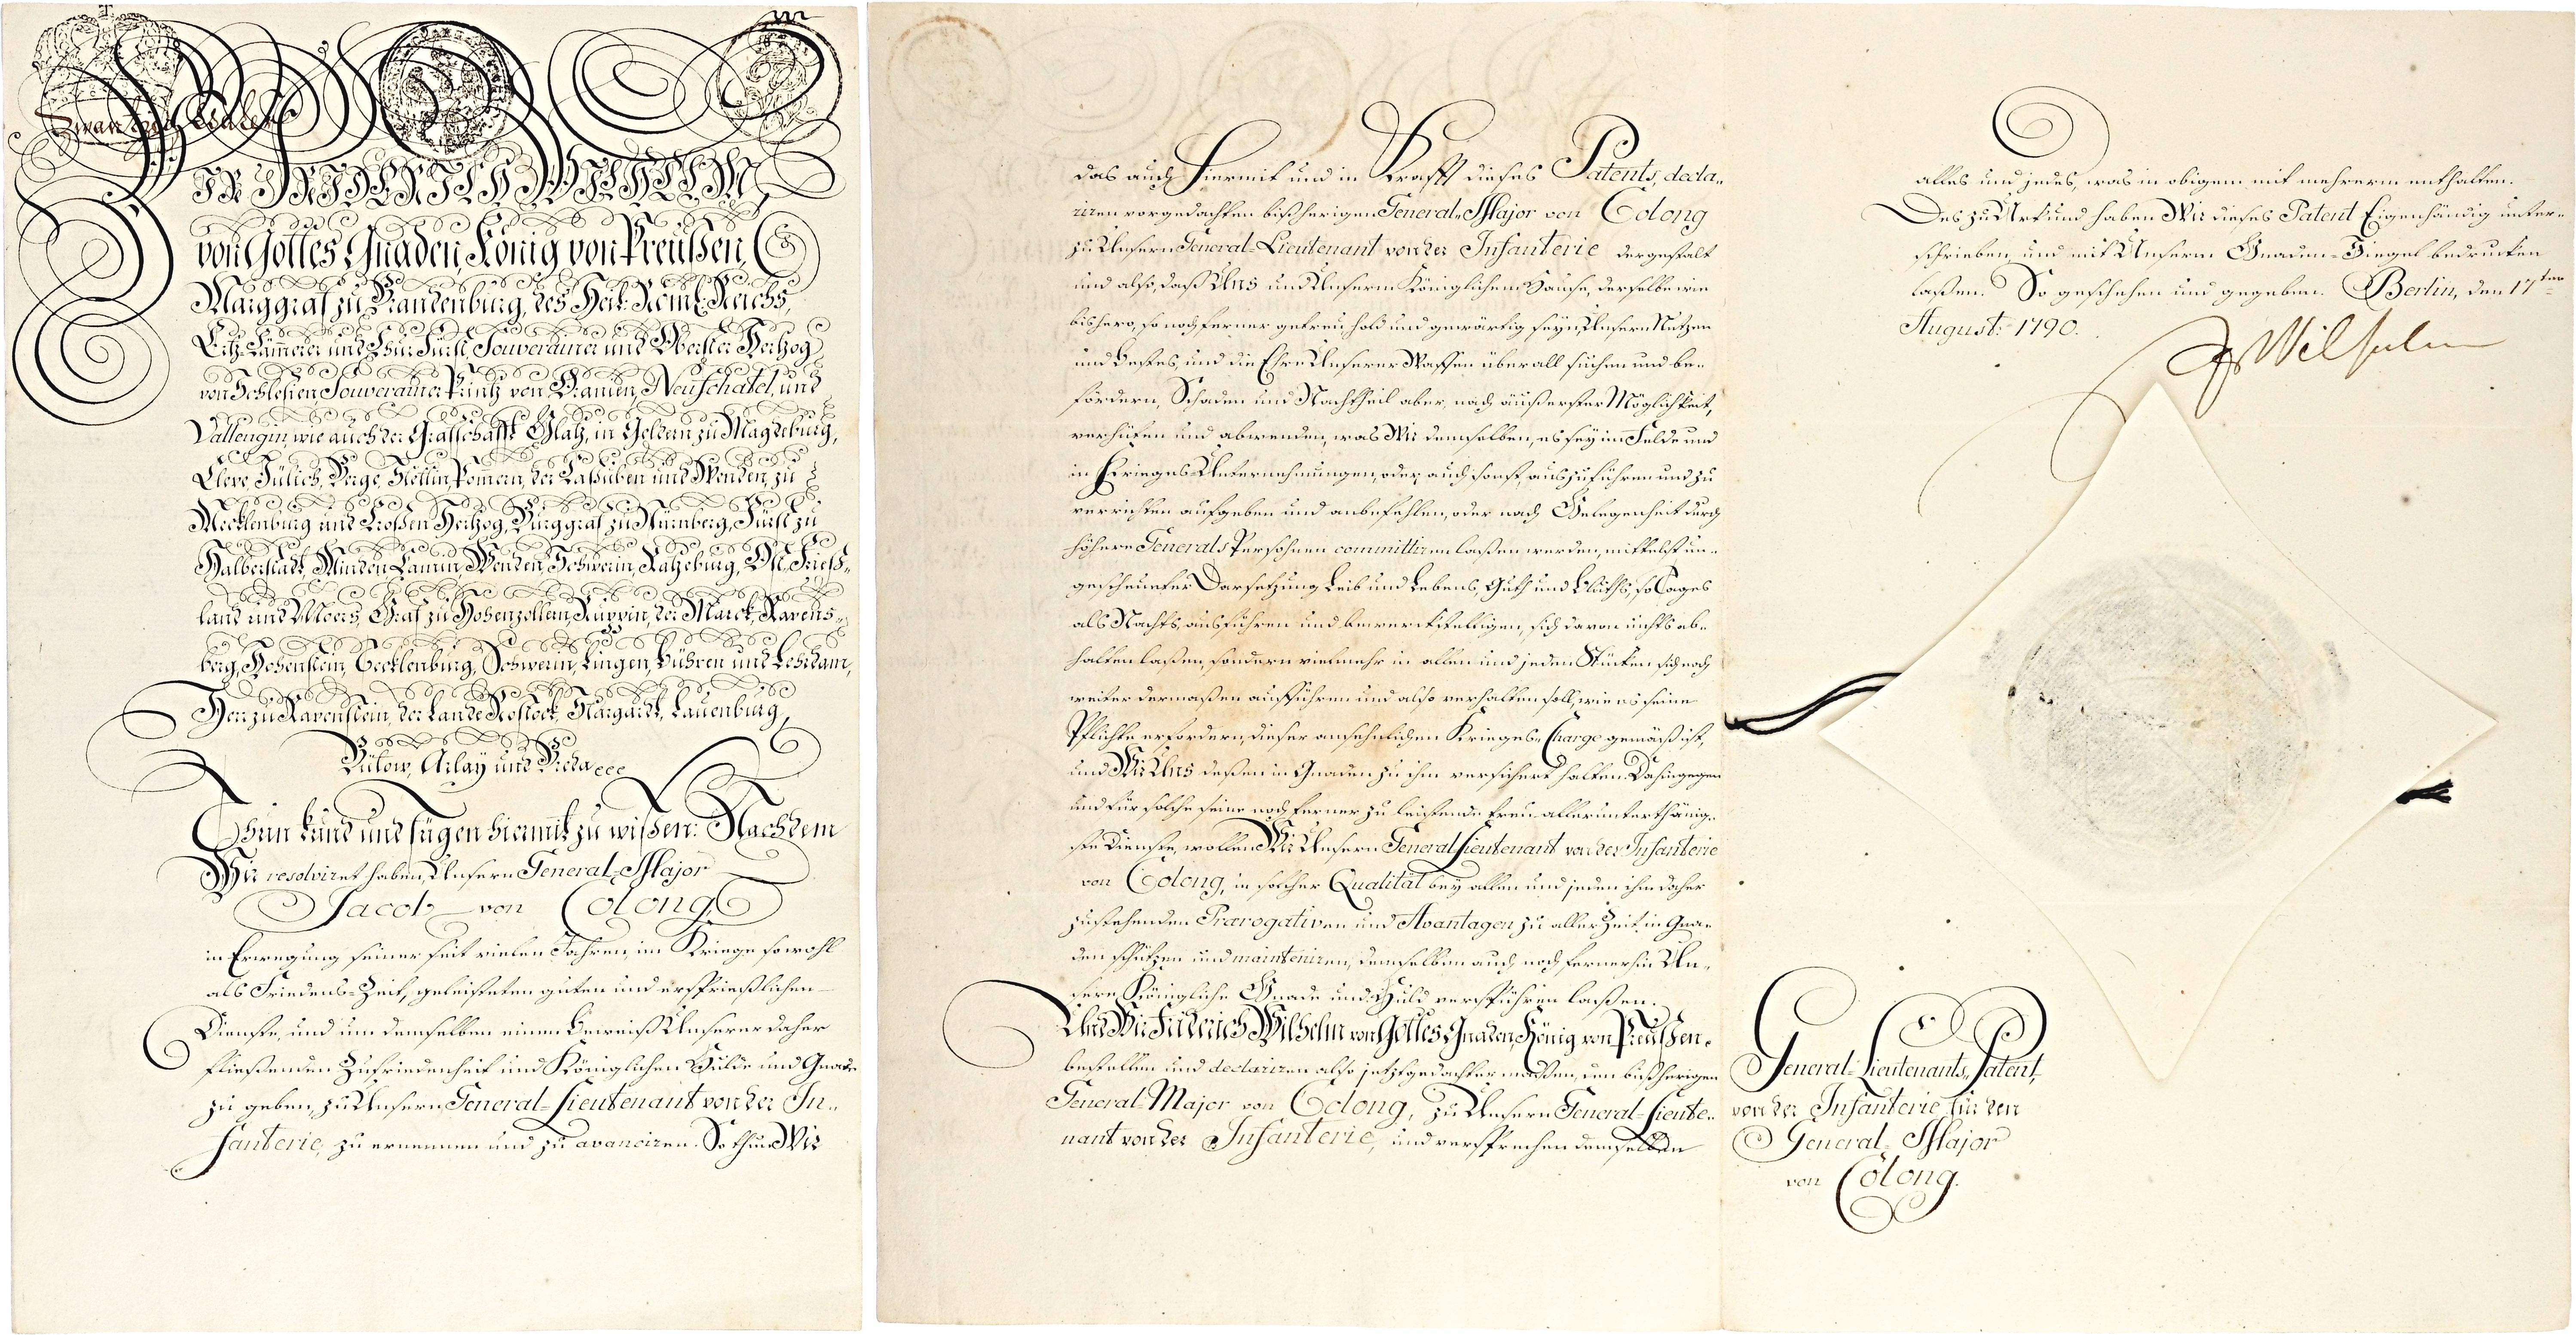 Zwantzig Thaler
WIR FRIDERICH WILHELM,
von Gottes Gnaden, König von Preußen,
Marggraf zu Brandenburg, des Heil: Röm: Reichs,
Ertz-Cämmerer und Chur Fürst, Souverainer und Oberster Hertzog
von Schlesien, Souverainer Printz von Oranien, Neufchatel, und
Vallengin, wie auch der Graffschafft Glatz, in Geldern, zu Magdeburg,
Cleve, Jülich, Berge, Stettin, Pommern, der Caßuben und Wenden, zu
Mecklenburg und Croßen Hertzog, Burggraf zu Nürnberg, Fürst zu
Halberstadt, Minden, Camin, Wenden, Schwerin, Ratzeburg, Ost-Frieß-
land und Moers, Graf zu Hohenzollern, Ruppin, der Marck, Ravens-
berg, Hohenstein, Tecklenburg, Schwerin, Lingen, Bühren und Lehrdam,
Herr zu Ravenstein, der Lande Rostock, Stargardt, Lauenburg,
Bütow, Arlay und Breda ccc
Thun kund und fügen hiermit zu wißen: Nachdem
Wir resolviret haben, Unsern General-Major
Jacob von Colong,
in Erwegung seiner seit vielen Jahren, im Kriege sowohl
als Friedens-Zeit, geleisteten guten und ersprießlichen
Dienste, und um demselben einen Beweiß Unserer daher
fließenden Zufriedenheit und Königlichen Hulde und Gnade
zu geben, zu Unsern General-Lieutenant von der In-
fanterie, zu ernennen und zu avanciren. So thun Wir
das auch hiermit und in Krafft dieses Patents, decla-
riren vorgedachten bißherigen General-Major von Colong
zu Unsern General-Lieutenant von der Infanterie dergestalt
und also, daß Uns und Unserm Königlichen Hause, derselbe wie
bishero, so noch ferner getreu, hold und gewärtig seyn, Unsern Nutzen
und Bestes, und die Ehre Unserer Waffen überall suchen und be-
fördern, Schaden und Nachtheil aber, nach äußerster Möglichkeit,
verhüten und abwenden, was Wir demselben, es sey im Felde und
in Krieges Unternehmungen, oder auch sonst, auszuführen und zu
verrichten aufgeben und anbefehlen, oder nach Gelegenheit durch
höhere Generals Persohnen committiren laßen werden, mittelst un-
gescheueter Darsetzung Leib und Lebens, Guth und Bluths, so Tages
als Nachts, ausführen und bewerckstelligen, sich davon nichts ab-
halten laßen, sondern vielmehr in allen und jeden Stücken sich noch
weiter dermaßen aufführen und also verhalten soll, wie es seine
Pflichte erfordern, dieser ansehnlichen Krieges-Charge gemäß ist,
und Wir Uns deßen in Gnaden zu ihm versichert halten. Dahingegen
und für solche seine noch ferner zu leistende treu allerunterthänig-
ste Dienste, wollen Wir Unsern General Lieutenant von der Infanterie
von Colong, in solcher Qualität bey allen und jeden ihm daher
zustehenden Prærogativen und Avantagen zu aller Zeit in Gna-
den schützen und mainteniren, demselben auch noch fernerhin Un-
sere Königliche Gnade und Huld verspühren laßen.
Und Wir Friderich Wilhelm von Gottes Gnaden, König von Preußen.
bestellen und declariren also jetztgedachter maßen, den bißherigen
General-Major von Colong, zu Unsern General-Lieute-
nant von der Infanterie, und versprechen demselben
alles und jedes, was in obigem mit mehrerm enthalten.
Des zu Urkund haben Wir dieses Patent Eigenhändig unter-
schrieben, und mit Unserm Gnaden-Siegel bedrucken
laßen. So geschehen und gegeben. Berlin, den 17ten
August: 1790.
Fr Wilhelm
General-Lieutenants-Patent,
von der Infanterie für den
General-Major
von Colong.